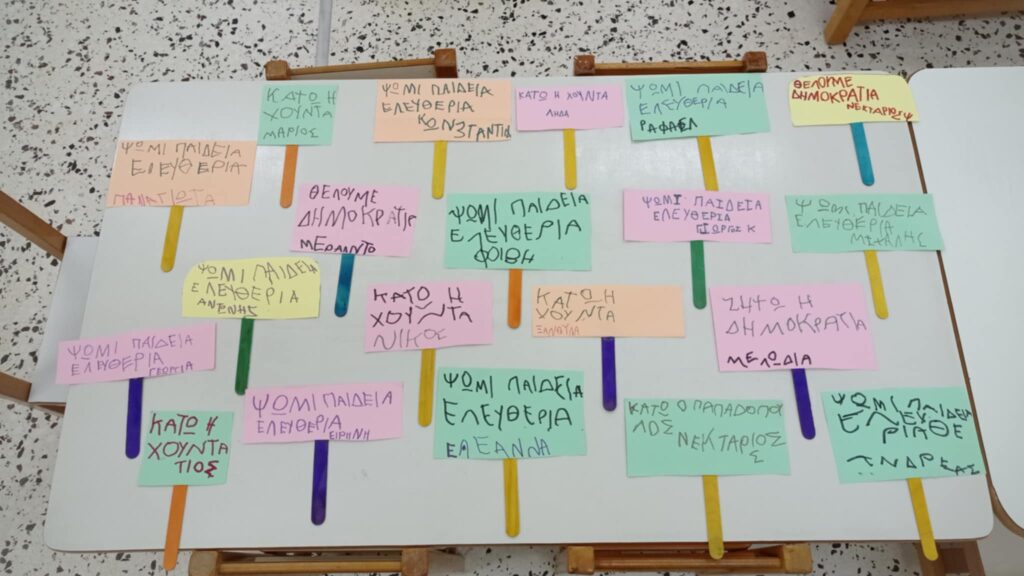 ΚΑΤΩ Η
ΧΟΥΝΤΑ
ΜΑΡΙΟΣ
ΨΩΜΙ ΠΑΙΔΕΙΑ
ΕΛΕΥΘΕΡΙΑ
ΚΩΝΣΤΑΝΤΙΑ
ΚΑΤΩ Η ΧΟΥΝΤΑ
ΛΗΔΑ
ΨΩΜΙ ΠΑΙΔΕΙΑ
ΕΛΕΥΘΕΡΙΑ
ΡΑΦΑΕΛ
ΘΕΛΟΥΜΕ
ΔΗΜΟΚΡΑΤΙΑ
ΝΕΚΤΑΡΙΟΣ Ψ
ΨΩΜΙ ΠΑΙΔΕΙΑ
ΕΛΕΥΘΕΡΙΑ
ΠΑΝΑΓΙΩΤΑ
ΘΕΛΟΥΜΕ
ΔΗΜΟΚΡΑΤΙΑ
ΨΩΜΙ ΠΑΙΔΕΙΑ
ΕΛΕΥΘΕΡΙΑ
ΦΟΙΒΗ
ΨΩΜΙ ΠΑΙΔΕΙΑ
ΕΛΕΥΘΕΡΙΑ
ΓΙΩΡΓΟΣ Κ
ΨΩΜΙ ΠΑΙΔΕΙΑ
ΕΛΕΥΘΕΡΙΑ
ΜΙΧΑΛΗΣ
ΨΩΜΙ ΠΑΙΔΕΙΑ
ΕΛΕΥΘΕΡΙΑ
ΚΑΤΩ Η
ΧΟΥΝΤΑ
ΝΙΚΟΣ
ΚΑΤΩ Η
ΧΟΥΝΤΑ
ΞΑΝΘΥΛΑ
ΖΗΤΩ Η
ΔΗΜΟΚΡΑΤΙΑ
ΜΕΛΩΔΙΑ
ΨΩΜΙ ΠΑΙΔΕΙΑ
ΕΛΕΥΘΕΡΙΑ
ΓΕΩΡΓΙΑ
ΚΑΤΩ Η
ΧΟΥΝΤΑ
ΤΙΟΣ
ΨΩΜΙ ΠΑΙΔΕΙΑ
ΕΛΕΥΘΕΡΙΑ
ΕΙΡΗΝΗ
ΨΩΜΙ ΠΑΙΔΕΙΑ
ΕΛΕΥΘΕΡΙΑ
ΚΑΤΩ Ο ΠΑΠΑΔΟΠΟΥ
ΛΟΣ
ΝΕΚΤΑΡΙΟΣ
ΨΩΜΙ ΠΑΙΔΕΙΑ
ΑΝΔΡΕΑΣ